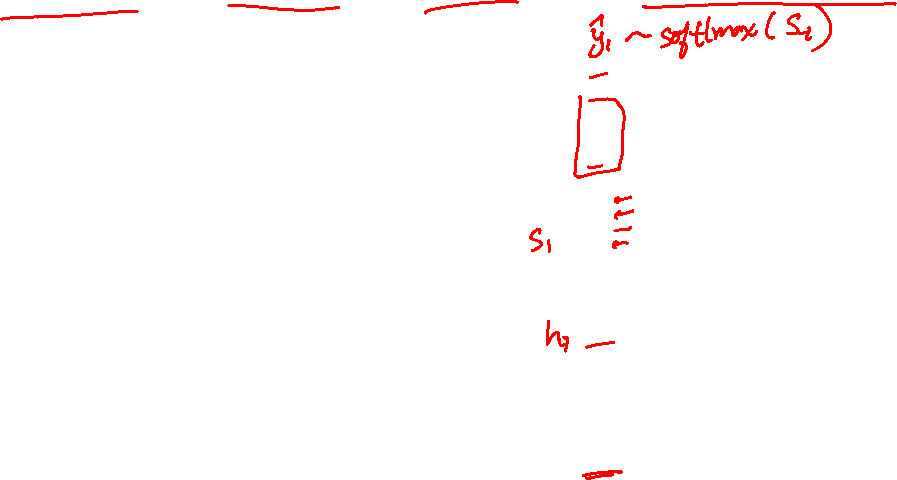 ŷ₁ ~ softmax(S₁)
S₁
h₇